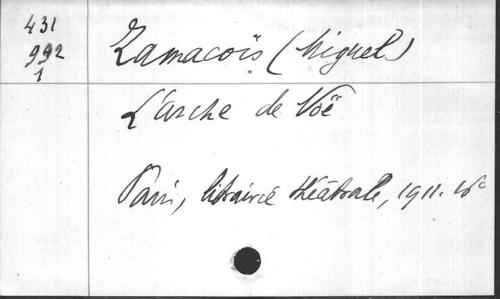 431
992
1
Zamacoïs (Miguel)
L'arche de Noë
Paris, librairie théâtrale, 1911. 16°